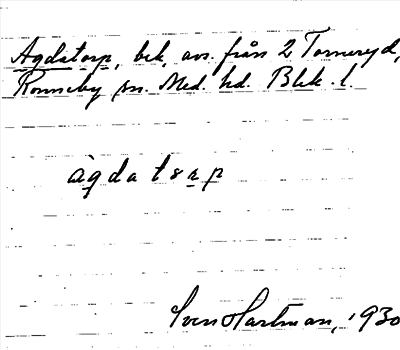 Agdatorp, bek. avs. från 2 Torneryd,
Ronneby sn. Med. hd. Blek. l.
àgdatsrp
Sven Hartman, 1930